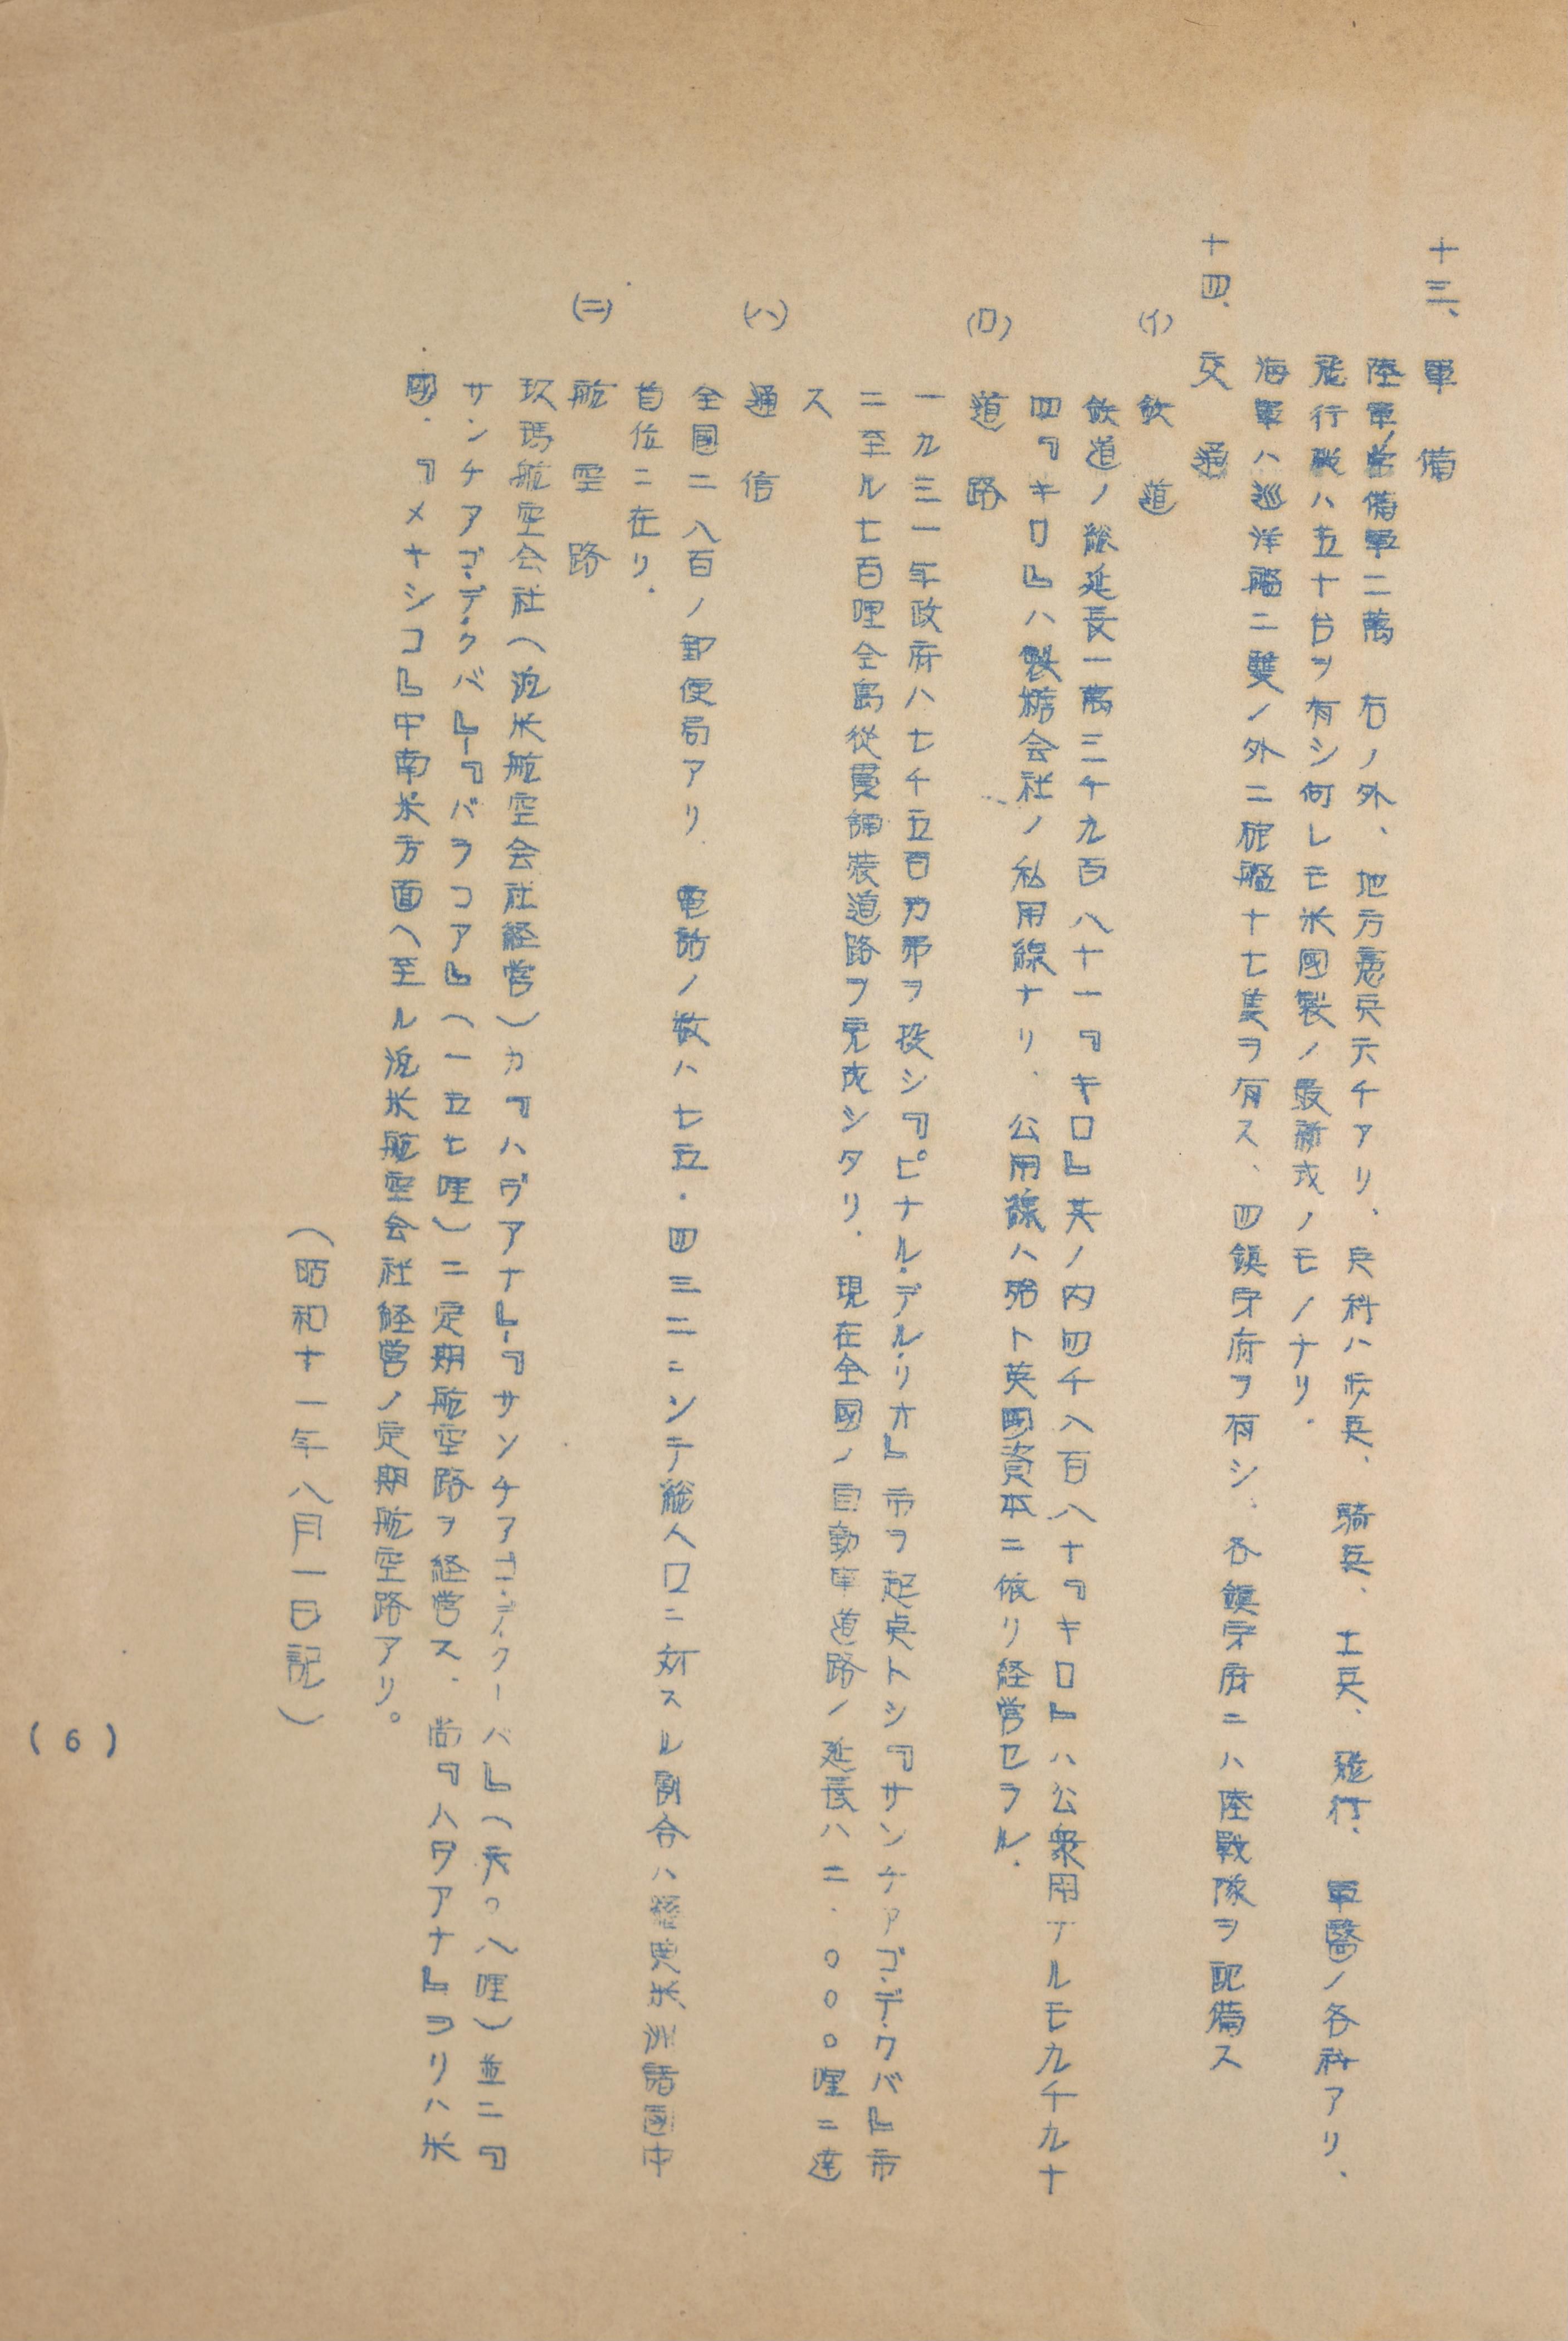 十三、軍備
陸軍常備軍二萬　右ノ外、地方憲兵六千アリ、兵科ハ歩兵、騎兵、工兵、飛行、軍醫ノ各科アリ、
飛行機ハ五十台ヲ有シ何レモ米國製ノ最新式ノモノナリ.
海軍ハ巡洋艦二隻ノ外ニ砲艦十七隻ヲ有ス、四鎮守府ヲ有シ、各鎮守府ニハ陸戰隊ヲ配備ス
十四、交通
(イ)　鉄道
鉄道ノ総延長一萬三千九百八十一『キロ』其ノ内四千八百八十『キロ』ハ公衆用ナルモ九千九十
四『キロ』ハ製糖会社ノ私用線ナリ、公用線ハ殆ト英國資本ニ依リ経営セラル.
(ロ)　道路
一九三一年政府ハ七千五百万弗ヲ投シ『ピナル・デル・リオ』市ヲ起点トシ『サンチアゴ・デ・クバ』市
ニ至ル七百哩全島従貫舗装道路ヲ完成シタリ.　現在全國ノ自動車道路ノ延長ハ二.〇〇〇哩ニ達
ス
(ハ)　通信
全國ニ八百ノ郵便局アリ.　電話ノ数ハ七五.四三二ニシテ総人口ニ対スル割合ハ米洲諸國中
首位ニ在リ.
(ニ)　航空路
玖瑪航空会社（汎米航空会社経営）カ『ハヴアナ』-『サンチアゴ・デ・クーバ』（六〇八哩）並ニ『
サンチアゴ・デ・クバ』-『バラコア』（一五七哩）ニ定期航空路ヲ経営ス.　尚『ハヴアナ』ヨリハ米
國.『メキシコ』中南米方面へ至ル汎米航空会社経営ノ定期航空路アリ。
（昭和十一年八月一日記）
(6)